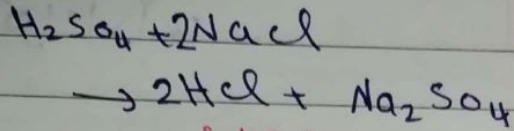 H₂SO₄ + 2NaCl
→ 2HCl + Na₂SO₄